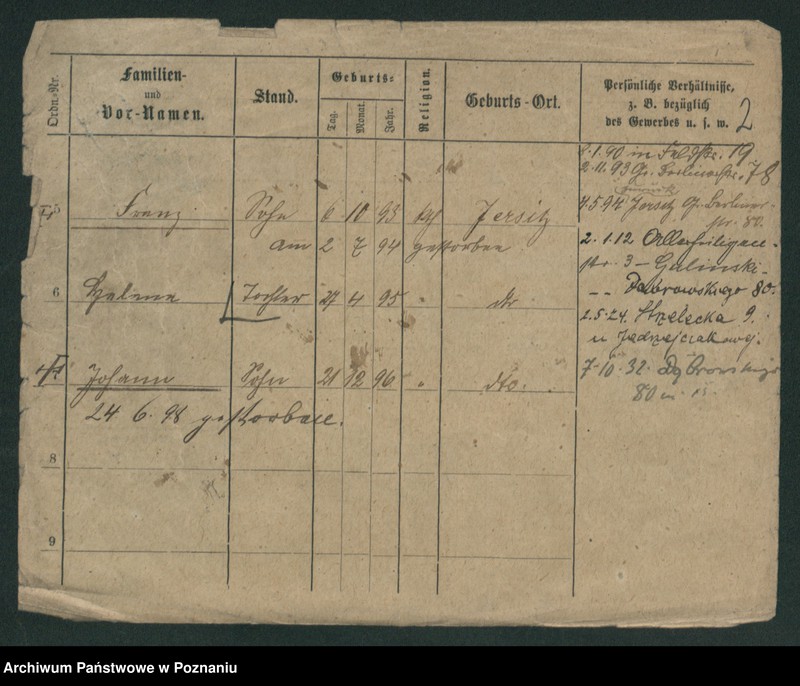 Ordn.-Nr.
Familien-
und
Vor-Namen.
Stand.
Geburts-
Tag.
Monat.
Jahr.
Religion.
Geburts-Ort.
Persönliche Verhältnisse,
z. B. bezüglich
des Gewerbes u. s. w.
2
2.1.90 in Feldstr. 19
2.11.93 Gr. Berlinerstr. 78
5 Franz Sohn 6 10 93 Jersitz
4.5.94 Jersitz Gr. Berliner-
str. 80.
am 2 7 94 gestorben
2.1.12 Allerheiligen-
str. 3 – Galinski
6 Helene Tochter 27 4 95 dto
Dąbrowskiego 80.
2.5.24. Strzelecka 9.
u Jędrzejczakowej.
Johann Sohn 21 12 96 " dto.
7.10.32. Dąbrowskiego
80 m. 15
24 6. 98 gestorben.
8
9
Archiwum Państwowe w Poznaniu